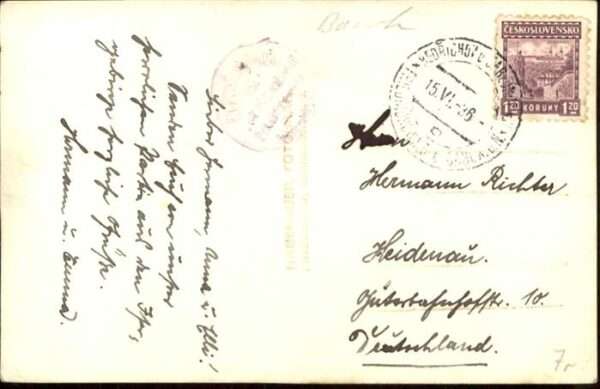 Lieber Hermann, Anna u. Elli!
Senden Euch von unserer
herrlichen Partie aus dem Iser-
gebirge herzliche Grüße.
Hermann u. Emma.
ČESKOSLOVENSKO
1.20 KORUNY 1.20
15.VI.
Herrn
Hermann Richter
Heidenau.
Güterbahnhofstr. 10.
Deutschland.